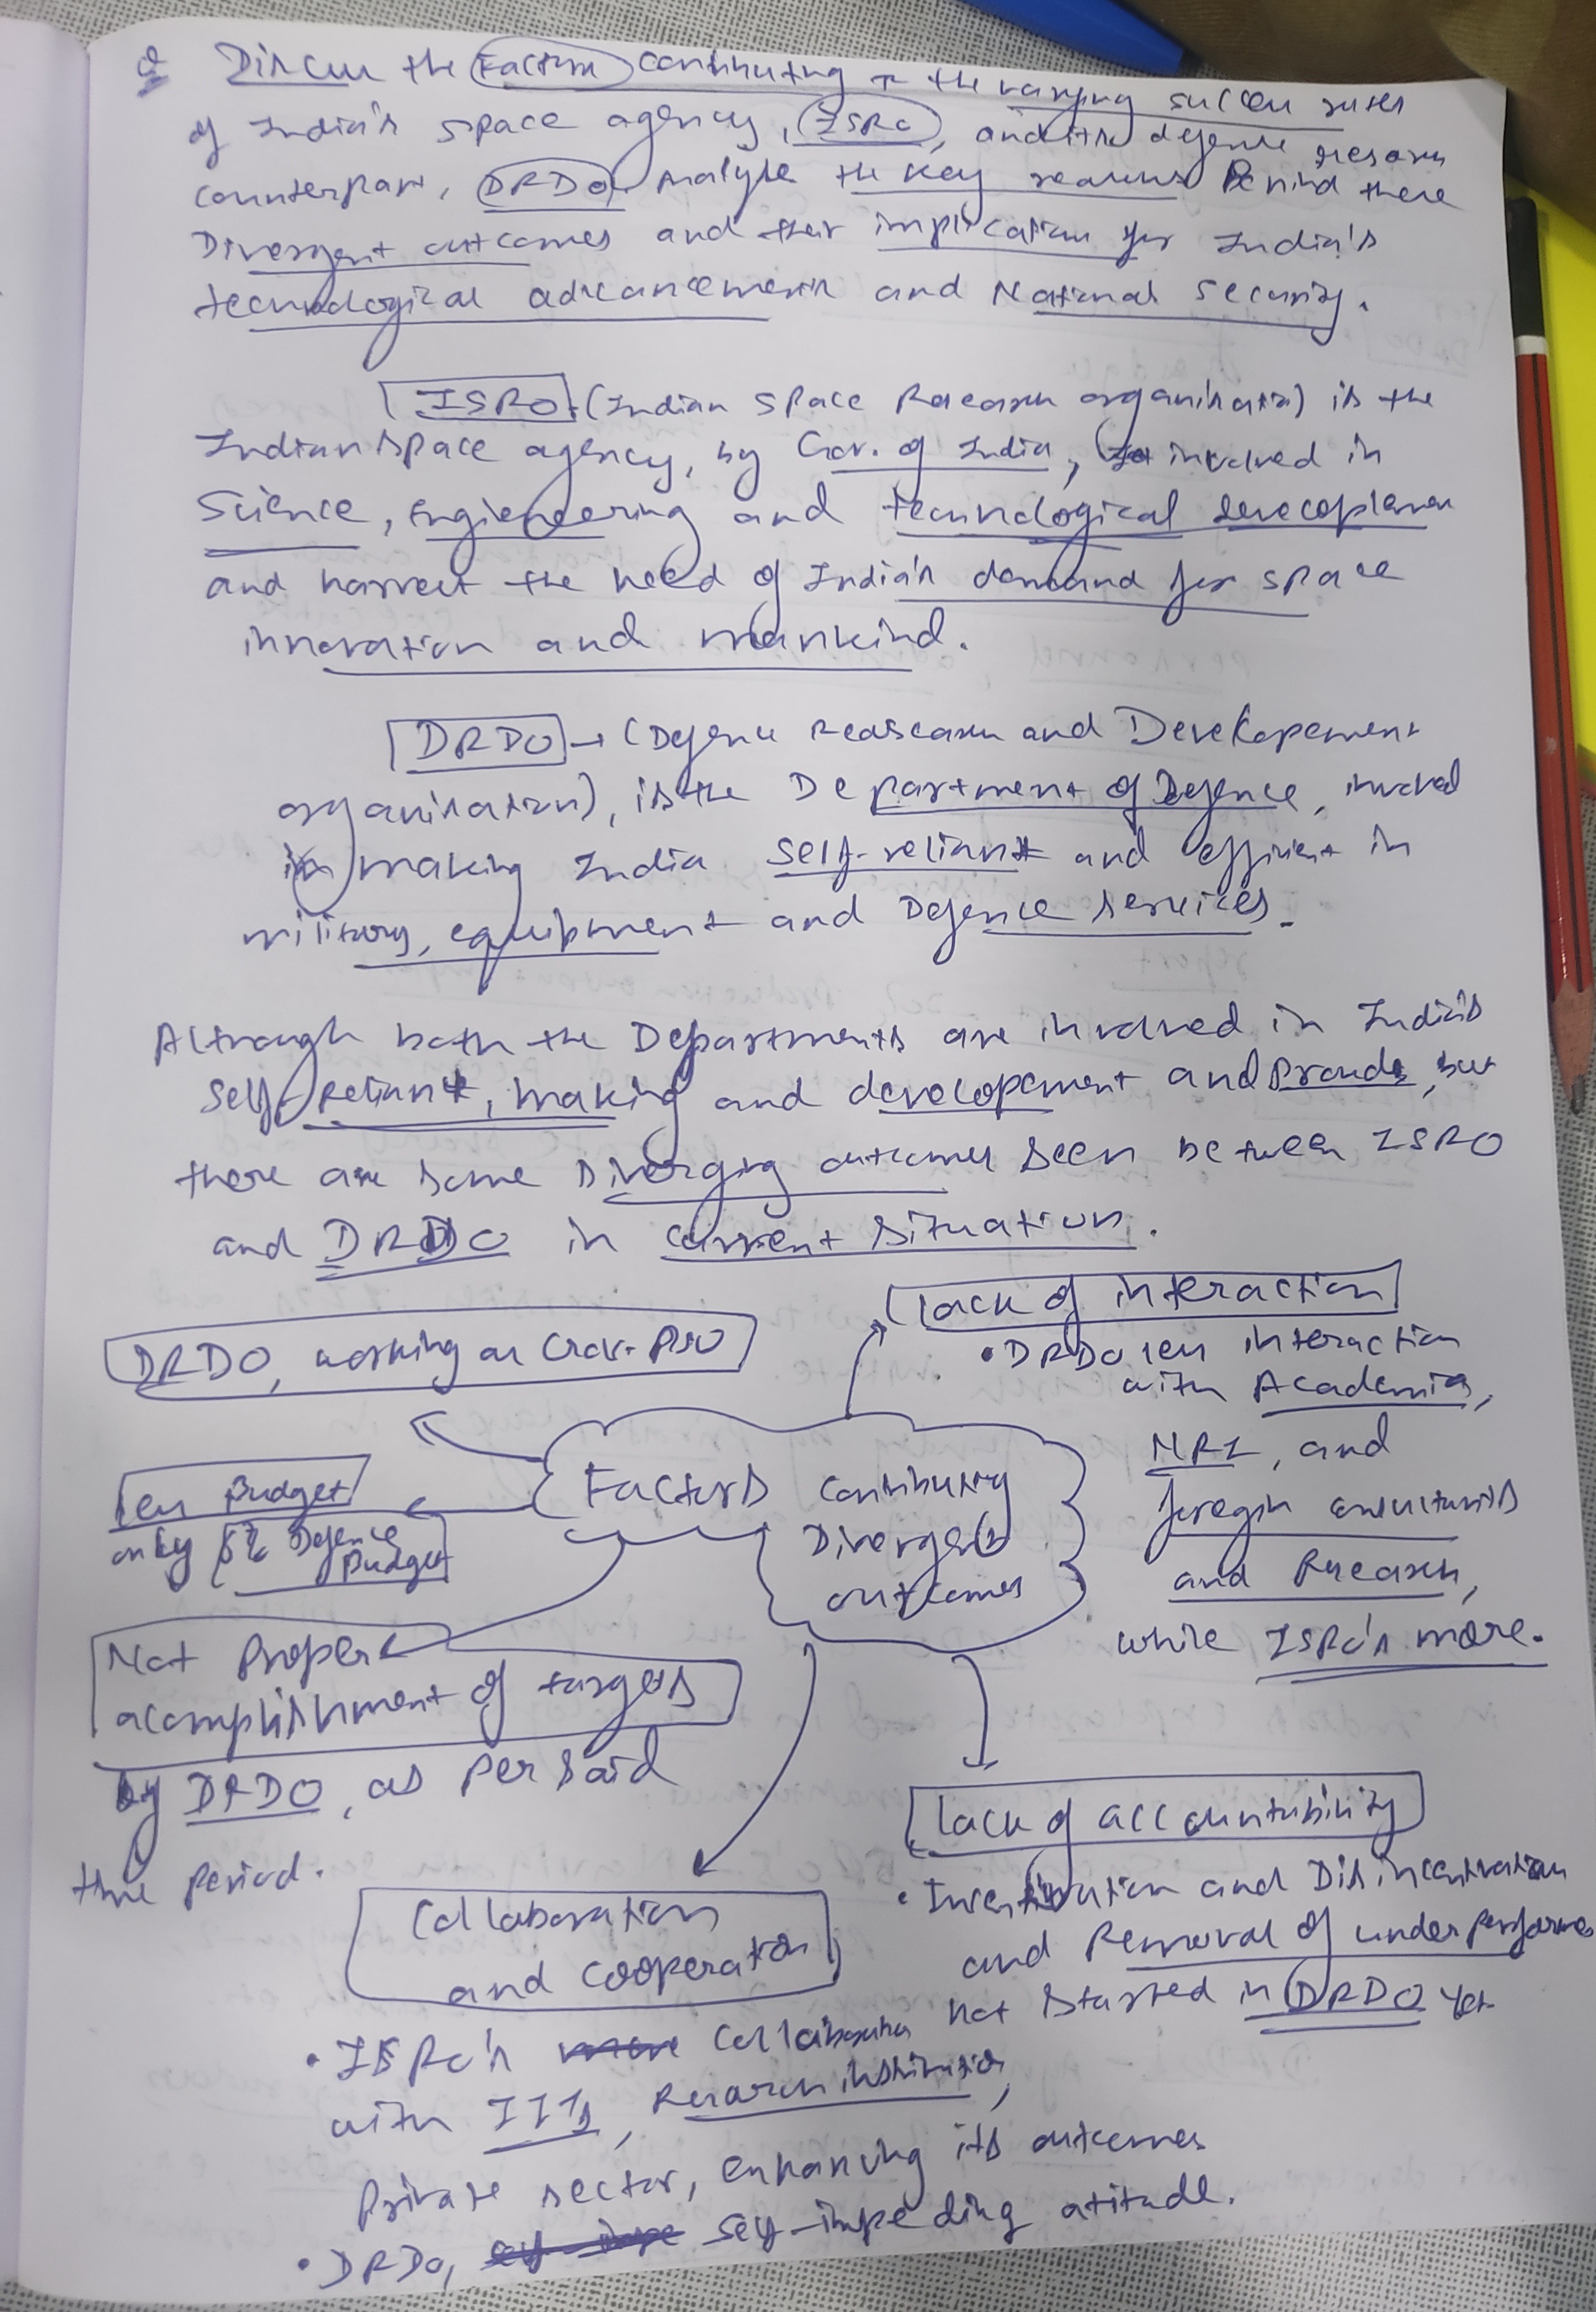 Q Discuss the Factors contributing to the varying success rates
of India's space agency, ISRO, and its defence research
counterpart, DRDO. Analyse the key reasons Behind there
Divergent outcomes and their implication for India's
technological advancements and National Security.
ISRO. (Indian Space Research organisation) is the
Indian space agency, by Gov. of India, involved in
Science, Engieneering and technological development
and harvest the need of India's demand for space
innovation and mankind.
DRDO → (Defence Reaseach and Developement
organisation), is the Department of Defence, involved
in making India self-reliant and efficient in
military, equipment and Defence services.
Although both the Departments are involved in India's
self-reliant, making and developement and Prouds, but
there are some diverging outcomes seen between ISRO
and DRDO in current situation.
Lack of interaction
• DRDO less interaction
with Academia,
NRI, and
foregin consultants
and Research,
while ISRO's more.
DRDO, working as Gov. PSU
Factors contributing
Divergent
outcomes
less Budget
only 5% Defence
Budget
Not Proper
acomplishment of targets
by DRDO, as per said
time period.
Lack of accountability
• Investivation and Disincentivation
and Removal of underperformer
not started in DRDO yet
Collaboration
and cooperation
• ISRO's more collaboration
with IITs, Research institution,
Private sector, enhancing its outcomes
• DRDO, self-impeding atitude.